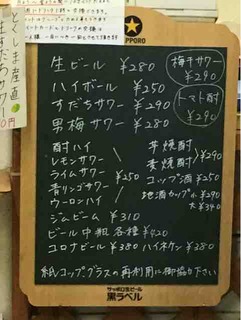 とくしま産直
SAPPORO
生ビール ¥280
ハイボール ¥250
すだちサワー ¥290
男梅サワー ¥280
梅干サワー ¥290
トマト酎 ¥290
酎ハイ
レモンサワー
ライムサワー
青リンゴサワー
ウーロンハイ
¥250
芋焼酎
麦焼酎
¥290
コップ酒 ¥250
地酒カップ小 ¥290
大 ¥340
ジムビーム ¥310
ビール中瓶各種 ¥420
コロナビール ¥380 ハイネケン ¥380
紙コップグラスの再利用に御協力下さい
サッポロ生ビール
黒ラベル